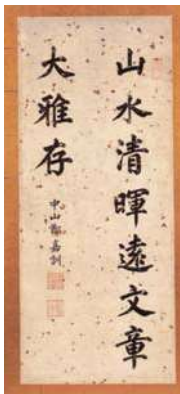 山水清暉遠文章
大雅存
中山鄭嘉訓